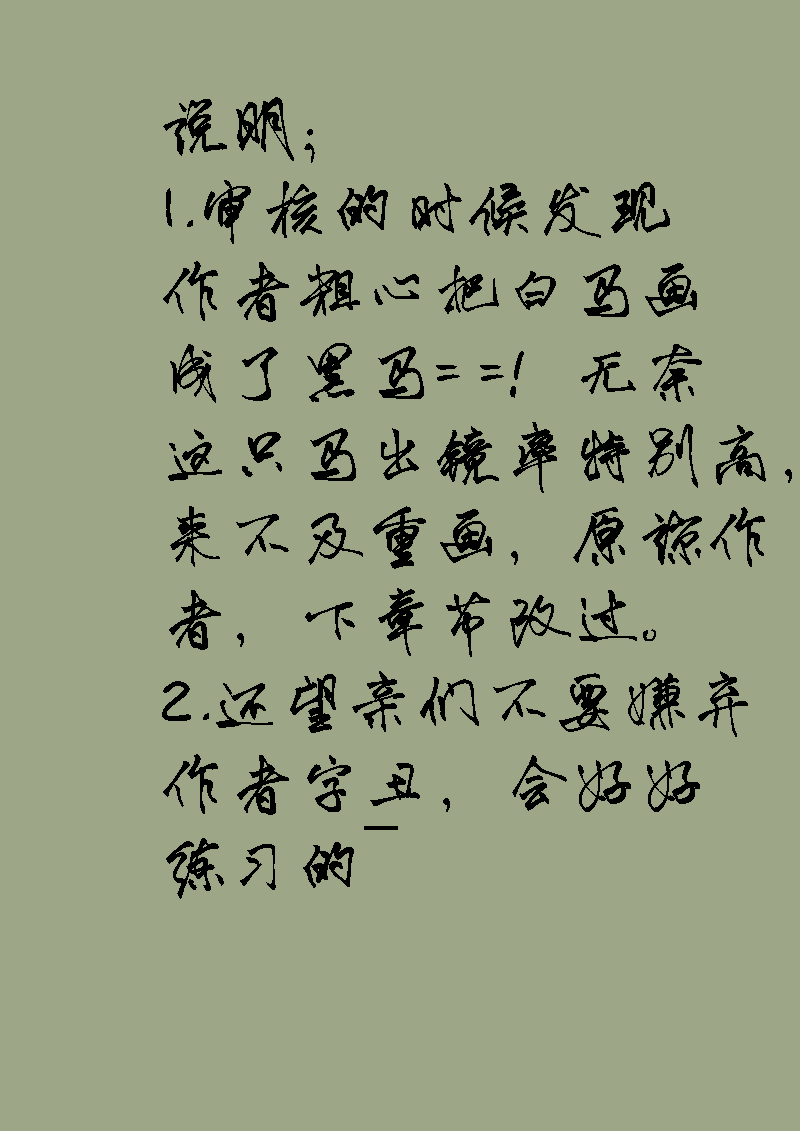 说明；
1.审核的时候发现
作者粗心把白马画
成了黑马==！ 无奈
这只马出镜率特别高，
来不及重画，原谅作
者，下章节改过。
2.还望亲们不要嫌弃
作者字丑，会好好
练习的